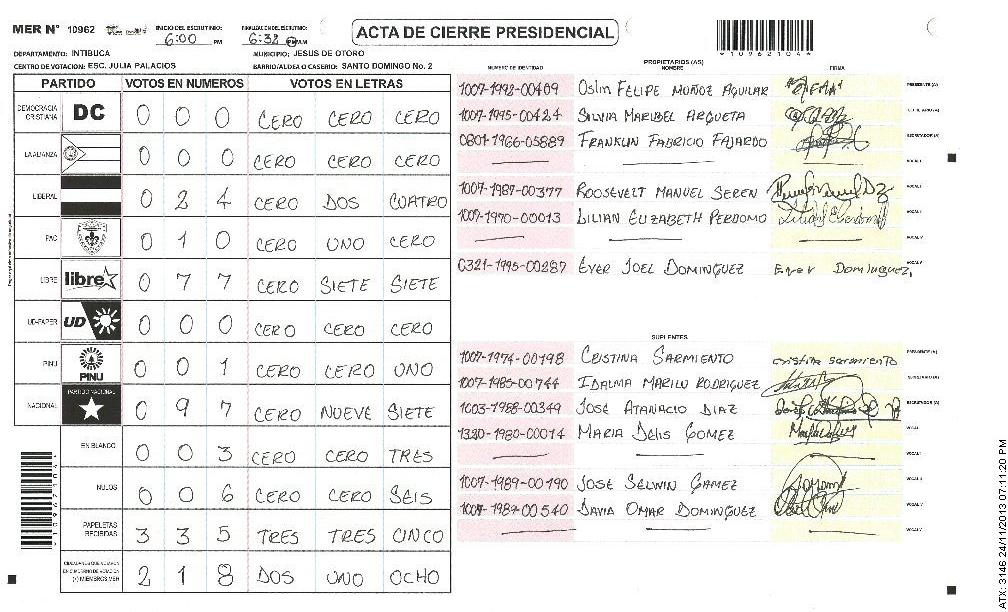 MER N° 10962 INICIO DEL ESCRUTINIO: 6:00 PM FINALIZACIÓN DEL ESCRUTINIO: 6:32 AM
ACTA DE CIERRE PRESIDENCIAL
*10962104*
DEPARTAMENTO: INTIBUCA MUNICIPIO: JESUS DE OTORO
CENTRO DE VOTACION: ESC. JULIA PALACIOS BARRIO/ALDEA O CASERIO: SANTO DOMINGO No. 2
PARTIDO VOTOS EN NUMEROS VOTOS EN LETRAS
DEMOCRACIA CRISTIANA DC 0 0 0 CERO CERO CERO
LA ALIANZA 0 0 0 CERO CERO CERO
LIBERAL 0 2 4 CERO DOS CUATRO
PAC 0 1 0 CERO UNO CERO
LIBRE libre 0 7 7 CERO SIETE SIETE
UD-FAPER UD 0 0 0 CERO CERO CERO
PINU PINU 0 0 1 CERO CERO UNO
NACIONAL PARTIDO NACIONAL 0 9 7 CERO NUEVE SIETE
EN BLANCO 0 0 3 CERO CERO TRES
NULOS 0 0 6 CERO CERO SEIS
PAPELETAS RECIBIDAS 3 3 5 TRES TRES CINCO
CIUDADANOS QUE VOTARON EN CUADERNO DE VOTACION (+) MIEMBROS MER 2 1 8 DOS UNO OCHO
PROPIETARIOS (AS)
NUMERO DE IDENTIDAD NOMBRE FIRMA
1007-1992-00409 OSlin FELIPE MUÑOZ AGUILAR PRESIDENTE (A)
1007-1995-00424 SILVIA MARIBEL ARGUETA
0801-1966-05889 FRANKLIN FABRICIO FAJARDO ESCRUTADOR (A)
VOCAL I
1007-1987-00377 ROOSEVELT MANUEL SEREN
1007-1970-00013 LILIAN ELIZABETH PERDOMO
0321-1995-00287 EVER JOEL DOMINGUEZ Ever Dominguez
SUPLENTES
1007-1974-00198 CRISTINA SARMIENTO cristina sarmiento PRESIDENTE (A)
1007-1985-00744 IDALMA MARILU RODRIGUEZ SECRETARIO (A)
1003-1988-00349 JOSÉ ATANACIO DIAZ ESCRUTADOR (A)
1320-1980-00014 MARIA DELIS GOMEZ VOCAL I
1007-1989-00190 JOSÉ SELWIN GAMEZ
1007-1987-00540 DAVIA OMAR DOMINGUEZ
ATX: 3146 24/11/2013 07:11:20 PM